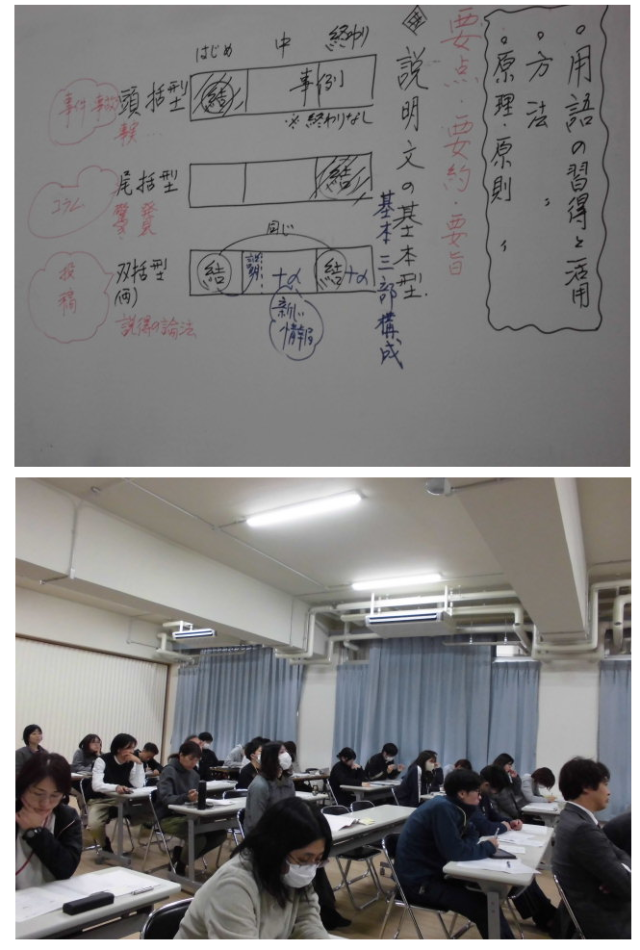 。用語の習得と活用
。方法
。原理・原則
要点・要約・要旨
説明文の基本型
基本三部構成
はじめ 中 終わり
頭括型
結 事例
※終わりなし
事件 事故
尾括型
結
コラム
双括型
結 説明 +α 結 +α
同じ
新しい情報
投稿
説得の論法